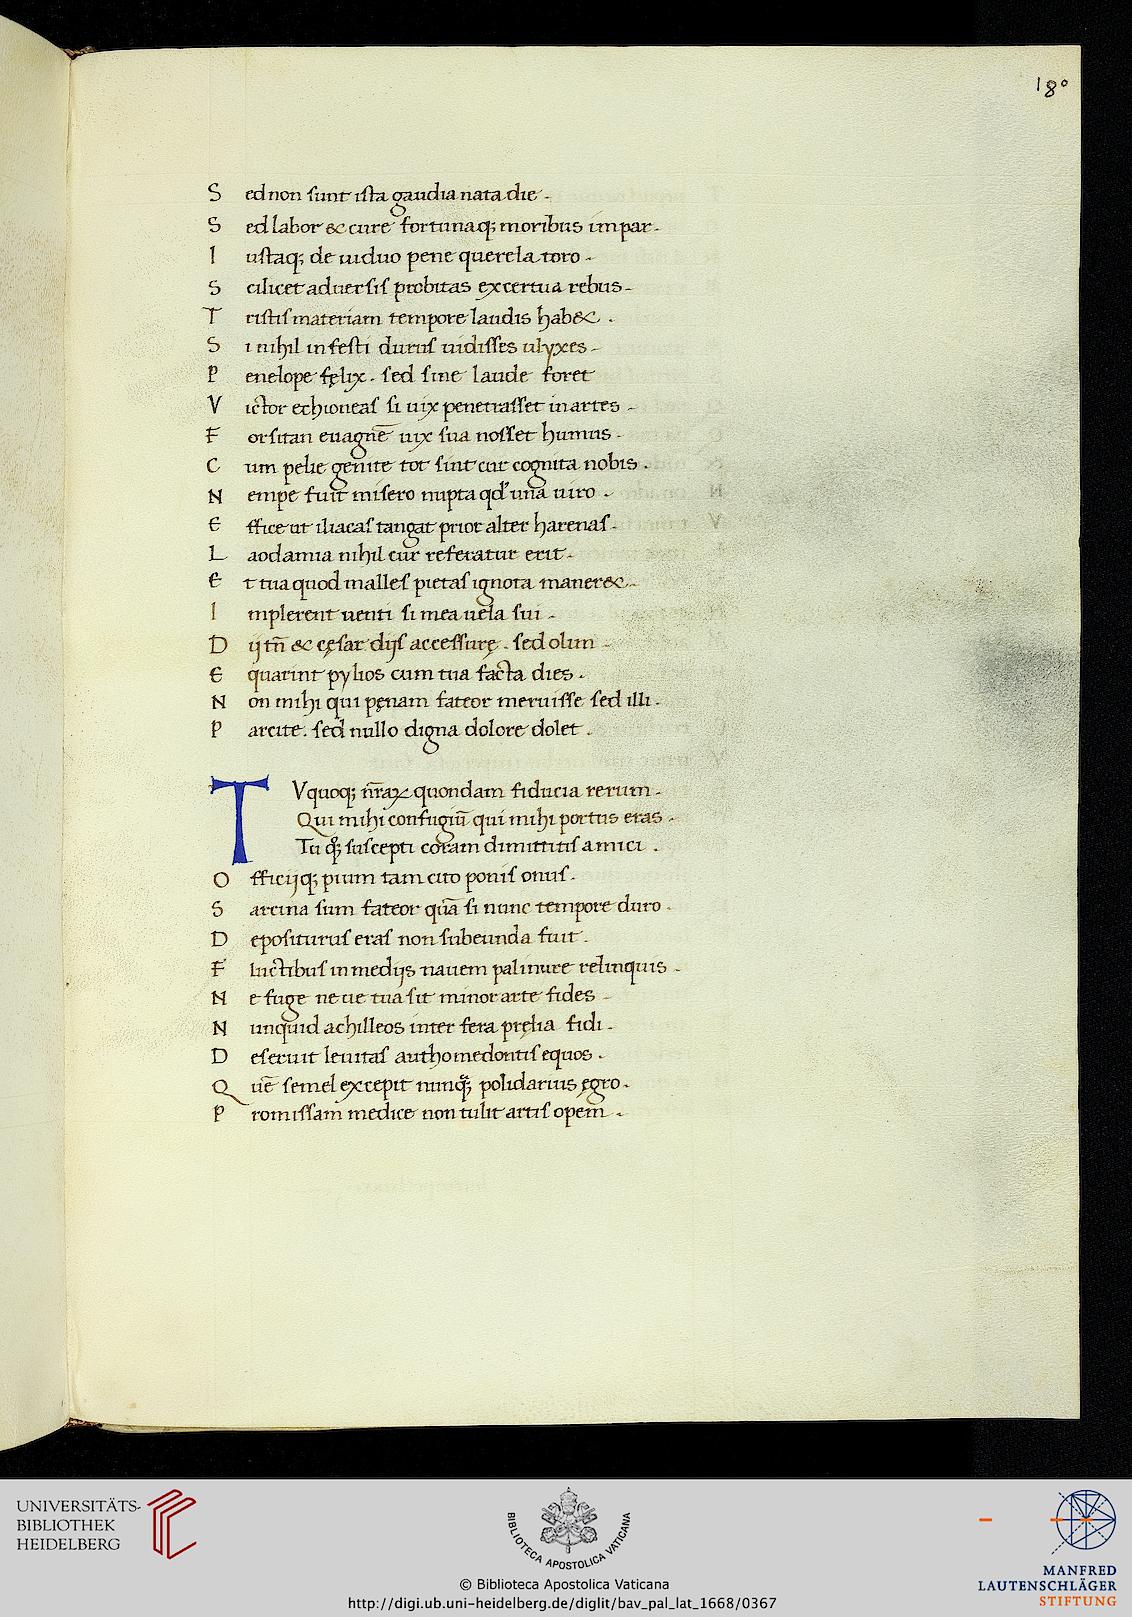 180
S ed non sunt ista gaudia nata die.
S ed labor & cure fortunaq; moribus impar.
I ustaq; de uiduo pene querela toro.
S cilicet aduersis probitas excertua rebus.
T ristis materiam tempore laudis hab&.
S i nihil infesti durus uidisses ulyxes.
P enelope fęlix. sed sine laude foret
V ictor echioneas si uix penetrasset in artes.
F orsitan euagnē uix sua nosset humus.
C um pelie genite tot sint cur cognita nobis.
N empe fuit misero nupta qđ una uiro.
E ffice ut iliacas tangat prior alter harenas.
L aodamia nihil cur referatur erit.
E t tua quod malles pietas ignota maner&.
I mplerent uenti si mea uela sui.
D ij tn̄ & cęsar dijs accessurę. sed olim
E quarint pylios cum tua facta dies.
N on mihi qui pęnam fateor meruisse sed illi.
P arcite. sed nullo digna dolore dolet.
T Vquoq; nr̄aꝝ quondam fiducia rerum.
Qui mihi confugiū qui mihi portus eras.
Tu qꝫ suscepti coram dimittitis amici.
O fficijq; pium tam cito ponis onus.
S arcina sum fateor quā si nunc tempore duro.
D epositurus eras non subeunda fuit.
F luctibus in medijs nauem palinure relinquis.
N e fuge ne ue tua sit minor arte fides.
N unquid achilleos inter fera pręlia fidi.
D eseruit leuitas authomedontis equos.
Q uē semel excepit nunqꝫ polidarius ęgro.
P romissam medice non tulit artis opem.
UNIVERSITÄTS-
BIBLIOTHEK
HEIDELBERG
BIBLIOTECA APOSTOLICA VATICANA
© Biblioteca Apostolica Vaticana
http://digi.ub.uni-heidelberg.de/diglit/bav_pal_lat_1668/0367
MANFRED
LAUTENSCHLÄGER
STIFTUNG